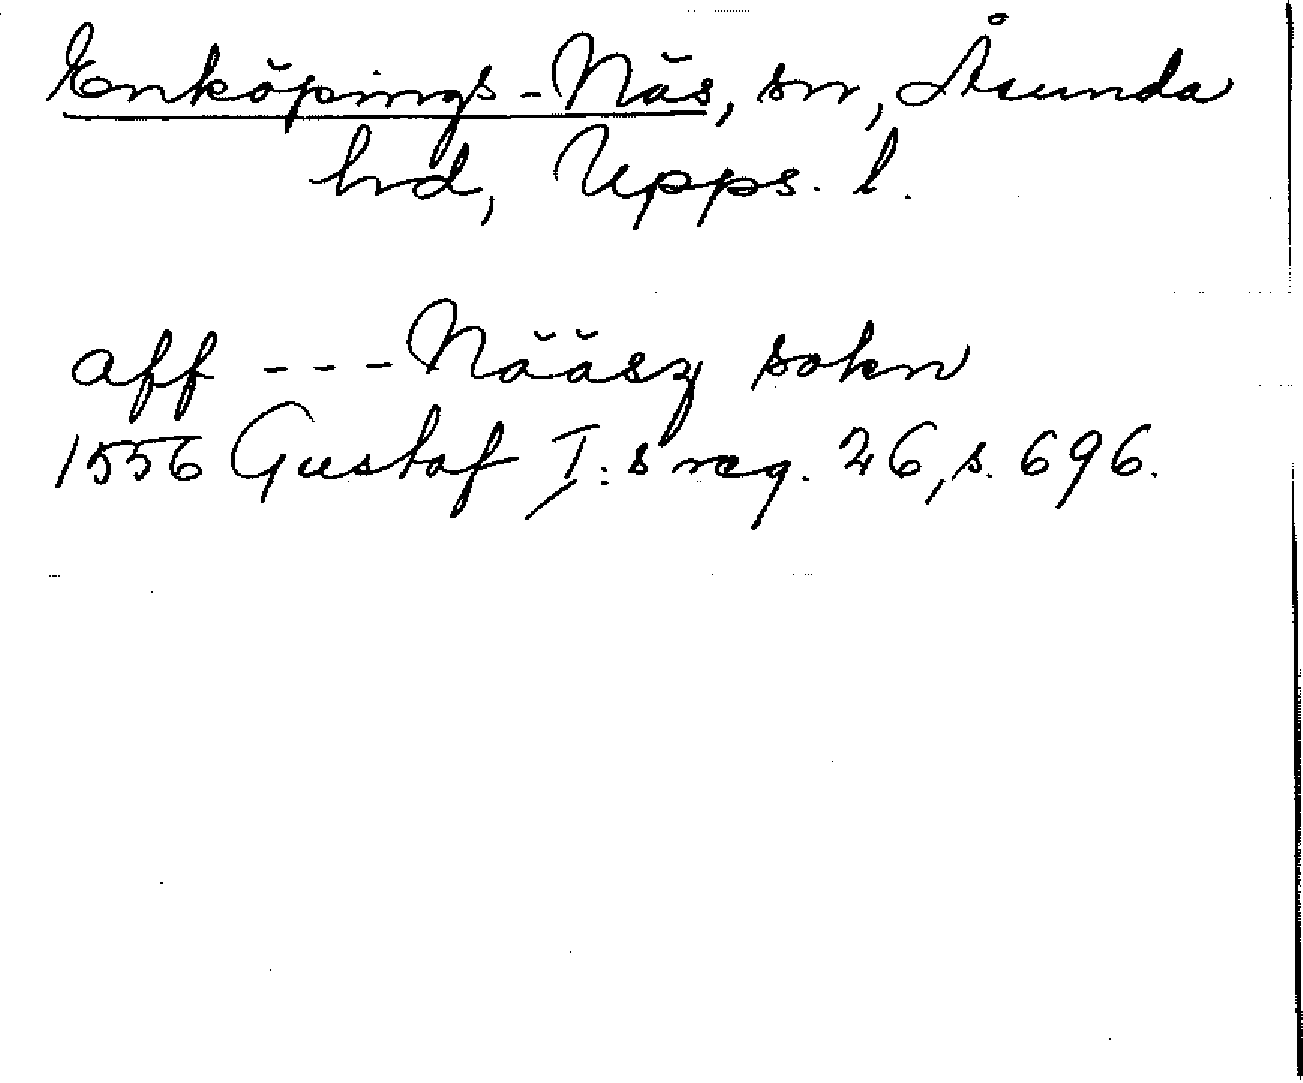 Enköpings-Näs, sn, Åsunda
hd, Upps. l.
aff --- Nääsz sokn
1556 Gustaf I:s reg. 26, s. 696.